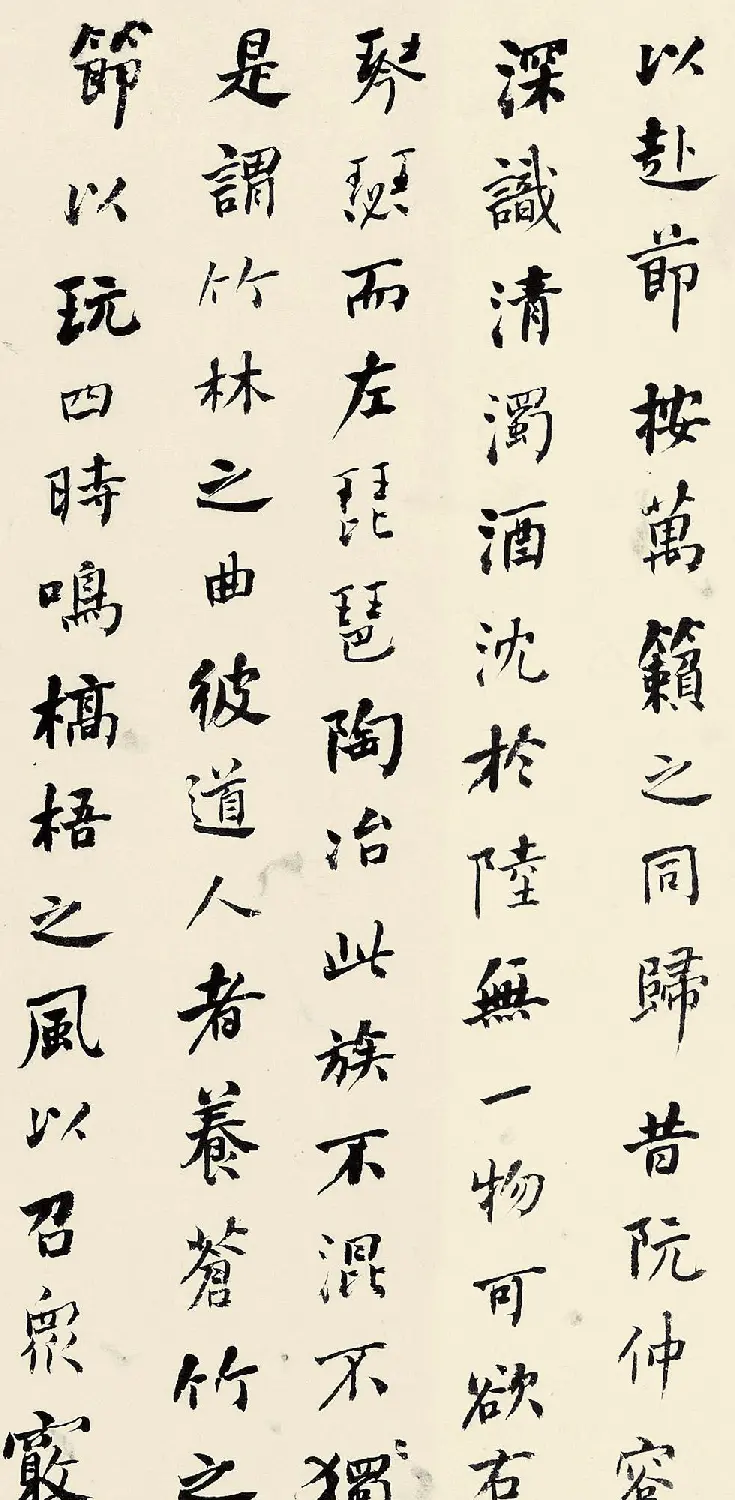 以赴節按萬籟之同歸昔阮仲容
深識清濁酒沈於陸無一物可欲右
琴瑟而左琵琶陶冶此族不混不獨
是謂竹林之曲彼道人者養蒼竹之
節以玩四時鳴槁梧之風以召衆竅